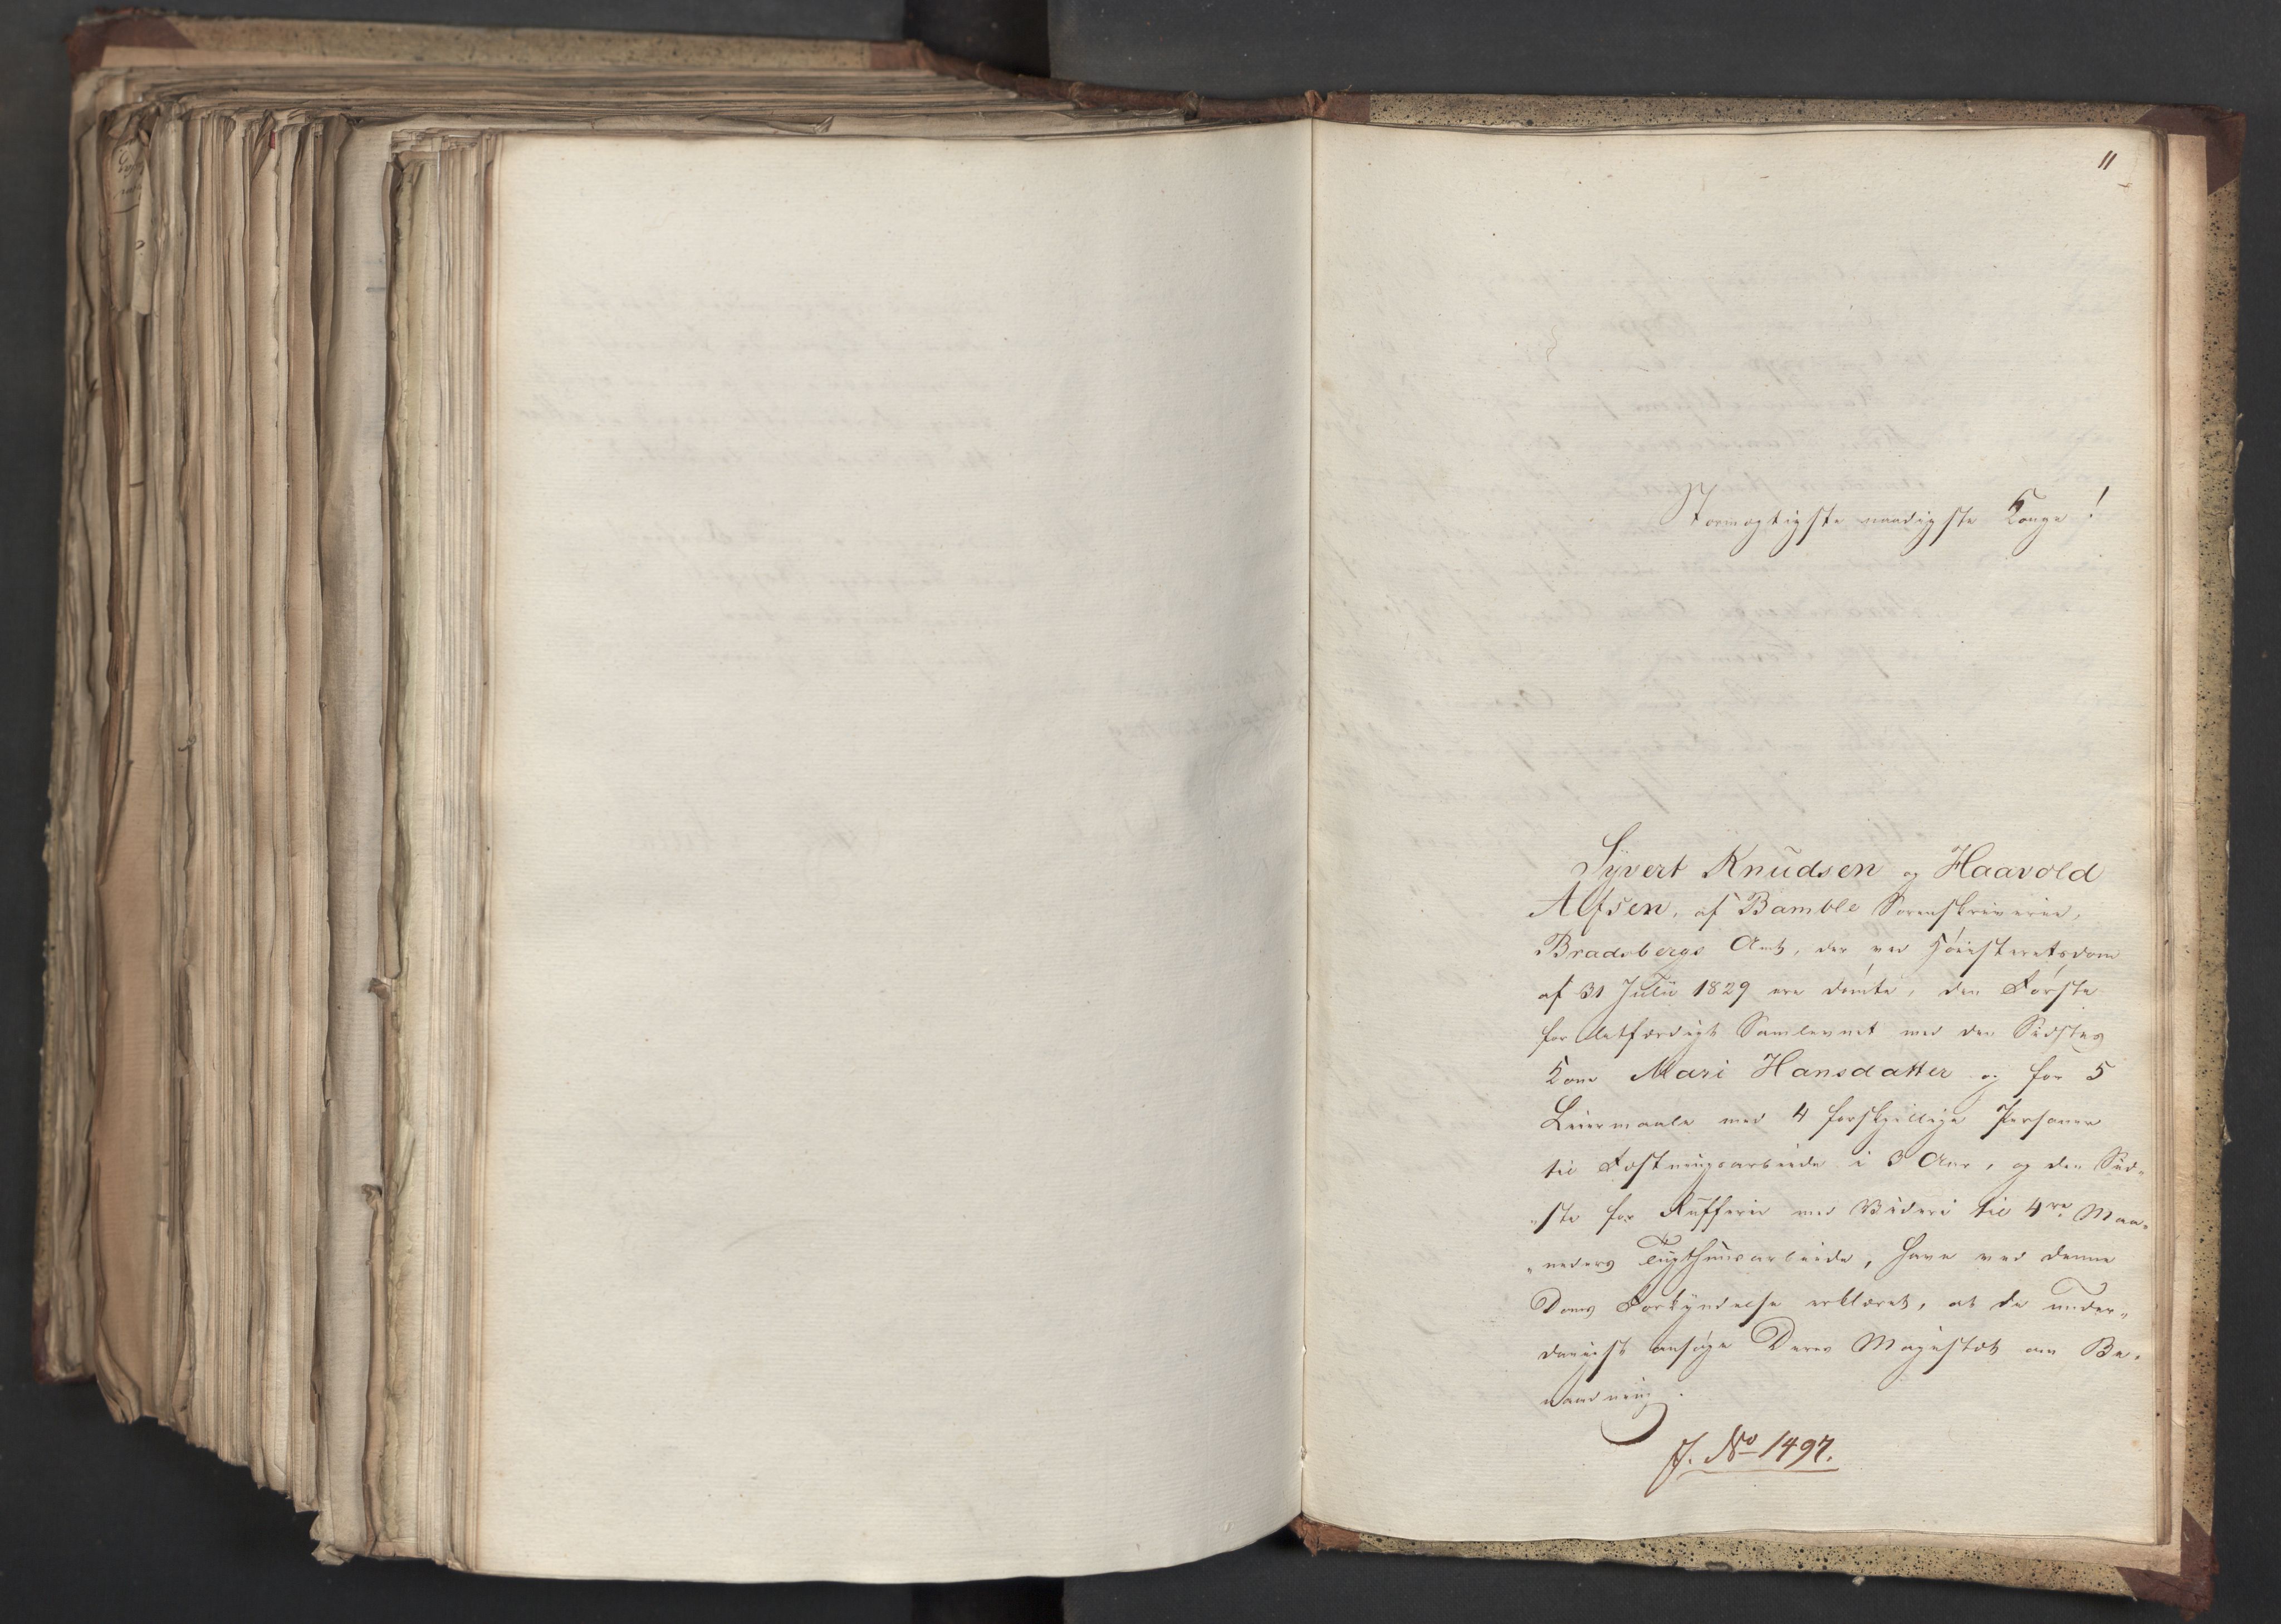 11
Stormægtigste naadigste Konge!
Syvert Knudsen og Haavold
Alfsen, af Bamble Sorenskriverie,
Bradsbergs Amt, der ved Høiesteretsdom
af 31 Julii 1829 ere dømte, den Første
for letfærdigt Samlevnet med den Sidstes
Kone Mari Hansdatter og for 5
Leiermaale med 4 forskjellige Personer
til Fæstningsarbeide i 3 Aar, og den Sid„
„ste for Rufferie med Videre til 4re Maa„
„neders Tugthuusarbeide, have ved denne
Doms Forkyndelse erklæret, at de under„
danigst ansøge Deres Majestæt om Be„
naadning.
J. No 1497.